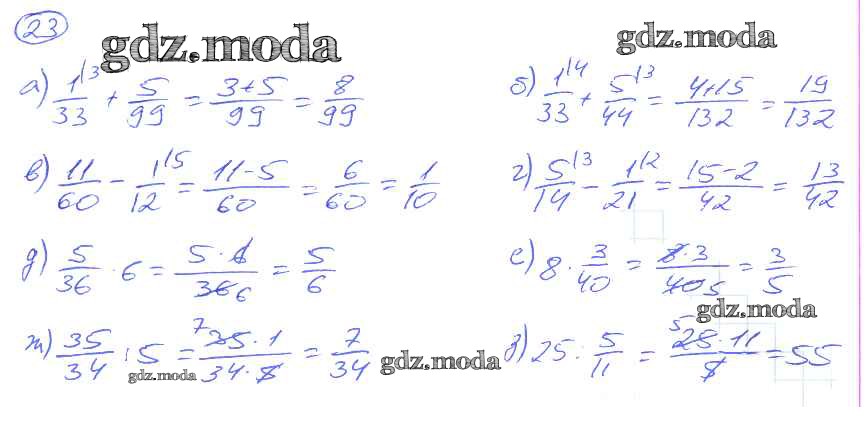 23
gdz.moda
gdz.moda
а) 1|3/33 + 5/99 = 3+5/99 = 8/99
б) 1|4/33 + 5|3/44 = 4+15/132 = 19/132
в) 11/60 - 1|5/12 = 11-5/60 = 6/60 = 1/10
г) 5|3/14 - 1|2/21 = 15-2/42 = 13/42
д) 5/36 · 6 = 5·6/36 6 = 5/6
е) 8 · 3/40 = 8·3/40 5 = 3/5
gdz.moda
ж) 35/34 : 5 = 7 35·1/34·5 = 7/34
gdz.moda
gdz.moda
з) 25 : 5/11 = 5 25·11/5 = 55